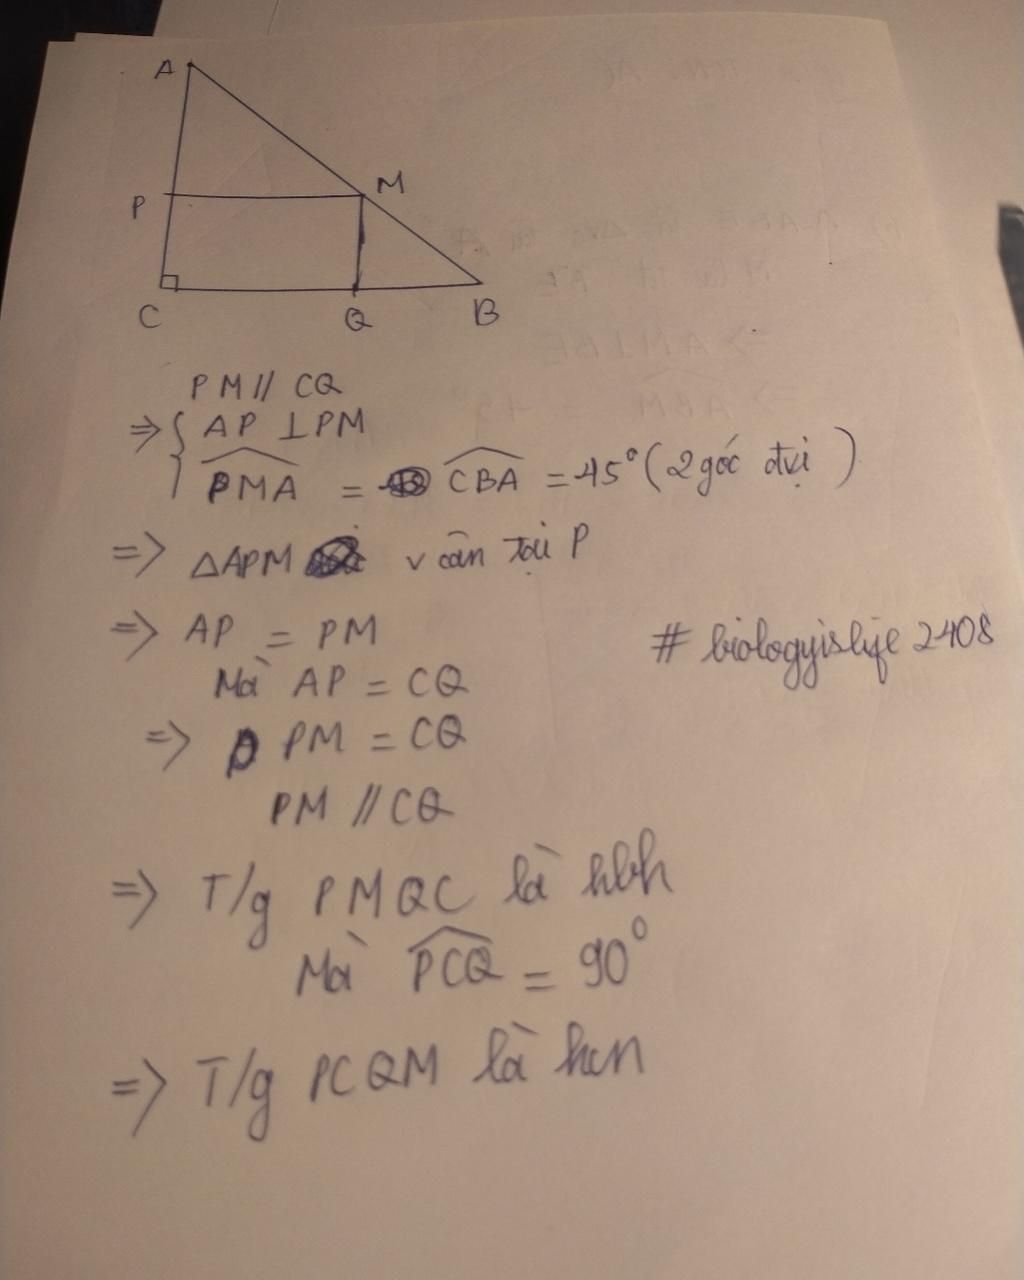 A
P
M
C
Q
B
PM // CQ
=> { AP ⊥ PM
PMA = CBA = 45° (2 góc đvị)
=> ΔAPM v cân tại P
=> AP = PM
# biologyislife 2408
Mà AP = CQ
=> PM = CQ
PM // CQ
=> T/g PMQC là hbh
Mà PCQ = 90°
=> T/g PCQM là hcn